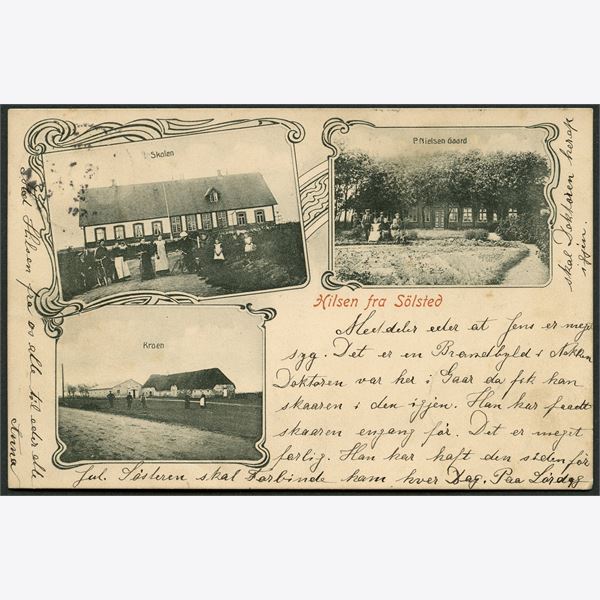 Skolen
P. Nielsen Gaard
Kroen
Hilsen fra Sölsted
Meddeler eder at Jens er meget
syg. Det er en Brandbyld i Nakken
Doktoren var her i Gaar da fik han
skaaren i den igjen. Han har faaet
skaaren engang før. Det er meget
farlig. Han har haft den siden før
Jul. Søsteren skal Forbinde ham hver Dag. Paa Lørdag
skal Doktoren herop
igjen.
Hilsen fra os alle til eder alle
Anna